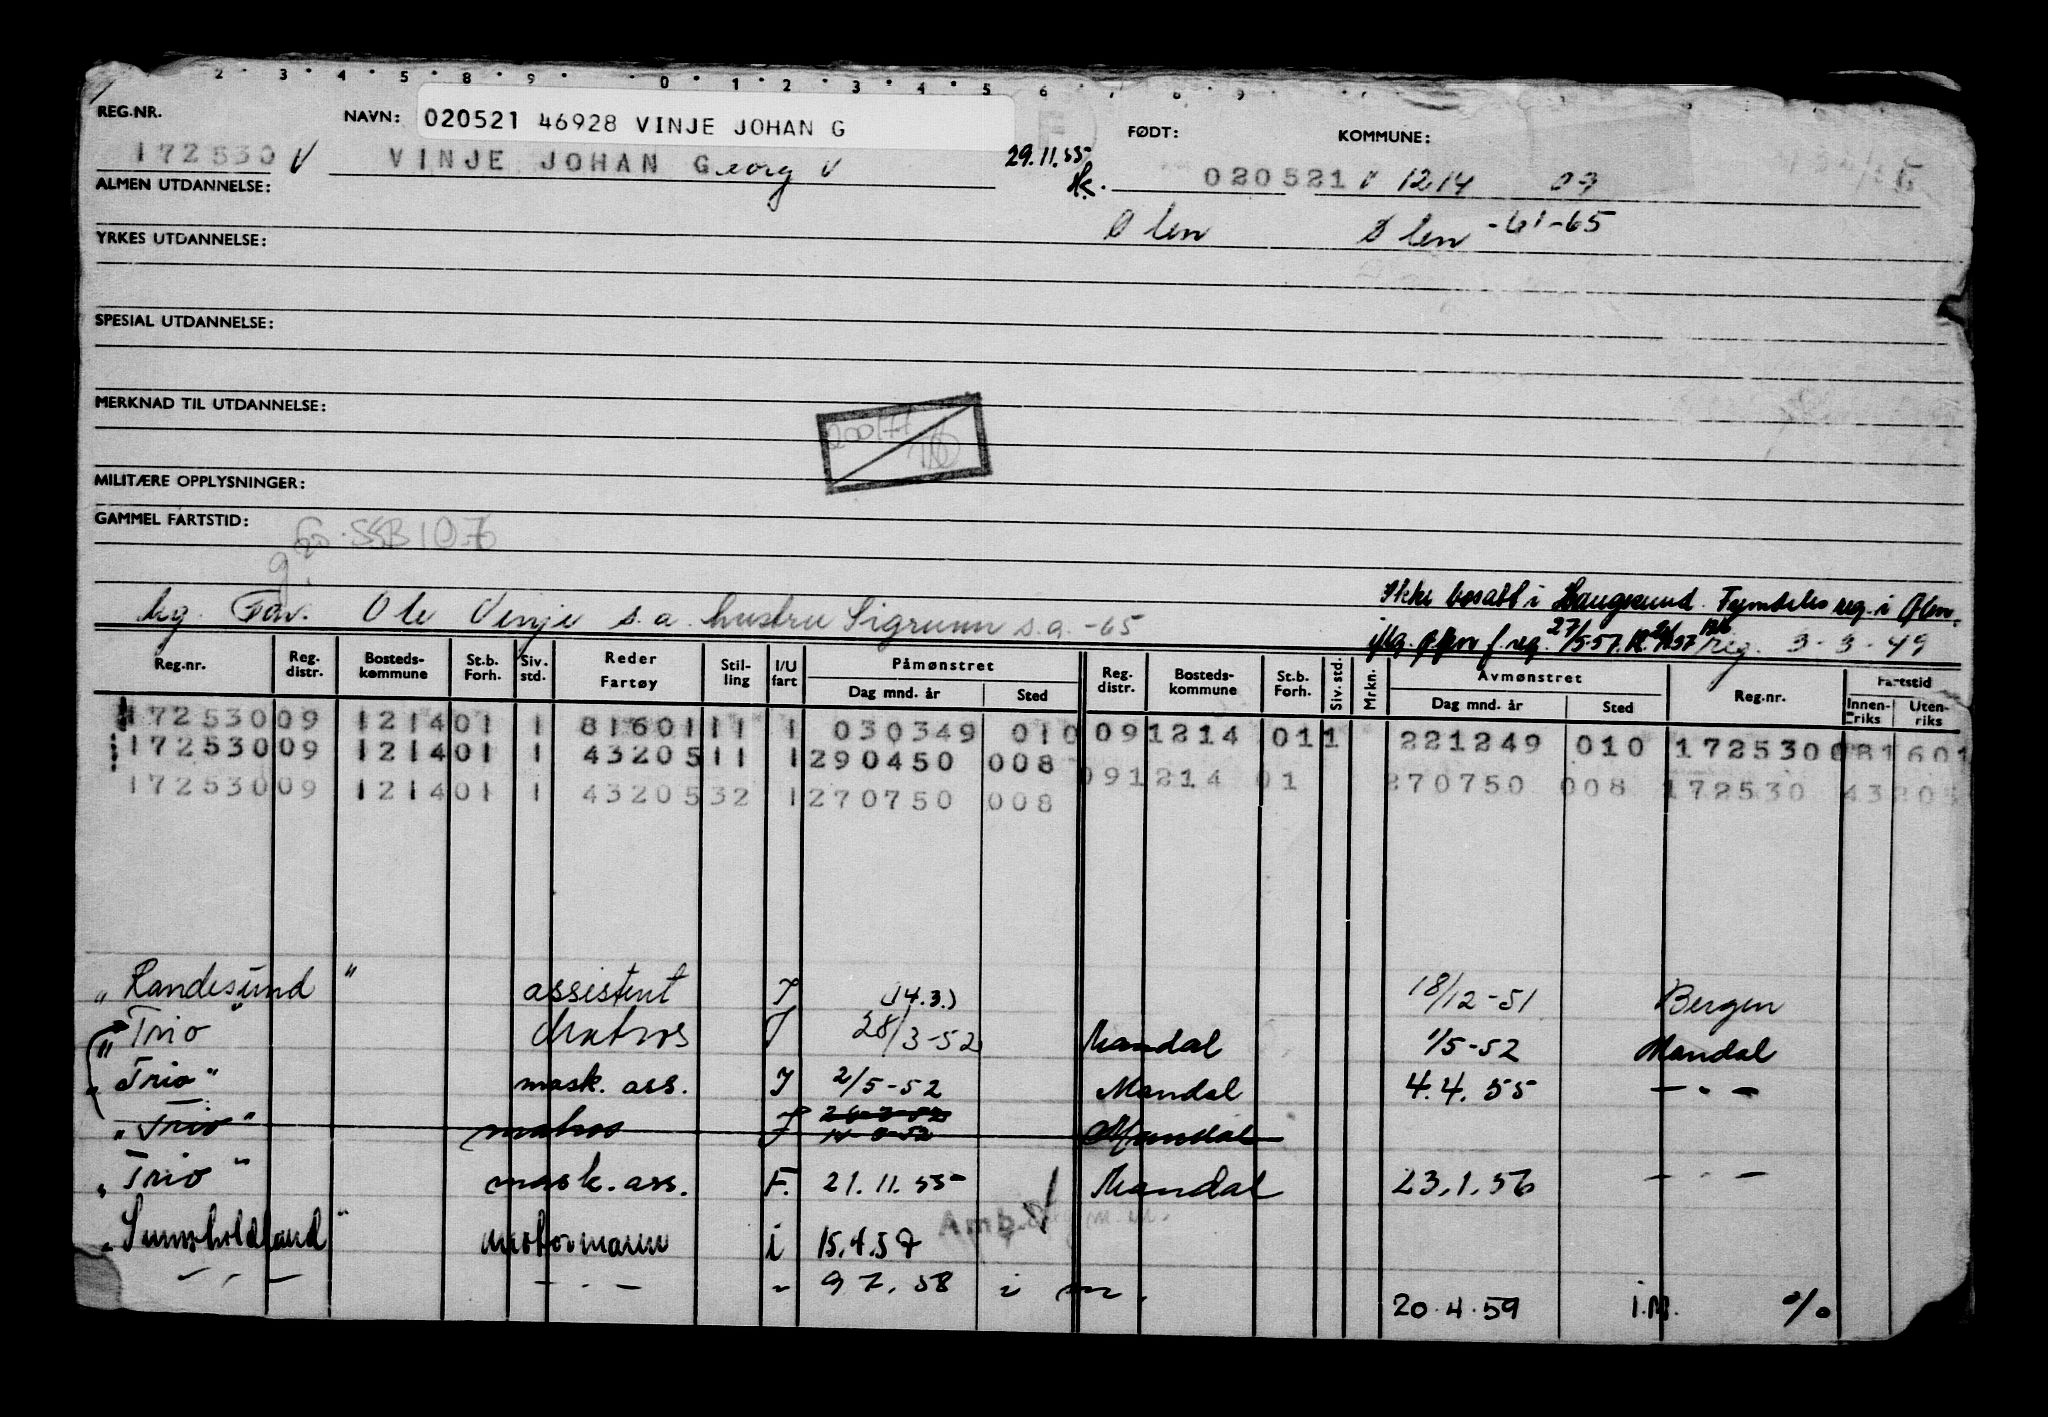 2 · 3 · 4 · 5 · 8 · 9 · 0 · 1 · 2 · 3 · 4 · 5 6 8 9
REG.NR. NAVN: 020521 46928 VINJE JOHAN G FØDT: KOMMUNE:
172530 V VINJE JOHAN Georg V 29.11.55 020521 V 1214 09
ALMEN UTDANNELSE:
Ølen Ølen -61-65
YRKES UTDANNELSE:
SPESIAL UTDANNELSE:
MERKNAD TIL UTDANNELSE:
MILITÆRE OPPLYSNINGER:
GAMMEL FARTSTID:
Ikke bosatt i Haugesund. Fremdeles reg. i Ølen.
Far. Ole Vinje s.a. hustru Sigrunn s.a. -65
reg. 3-3-49
Reg.nr. Reg. distr. Bosteds-kommune St.b. Forh. Siv. std. Reder Fartøy Stil-ling I/U fart Påmønstret Dag mnd. år Sted Reg. distr. Bosteds-kommune St.b. Forh. Siv. std. Mrkn. Avmønstret Dag mnd. år Sted Reg.nr. Fartstid Innen-riks Uten-riks
172530 09 1214 01 1 81601 11 1 030349 010 09 1214 01 1 221249 010 172530 081601
172530 09 1214 01 1 43205 11 1 290450 008 091214 01 270750 008 172530 43205
172530 09 1214 01 1 43205 32 1 270750 008
"Randesund" assistent I (14.3.) 18/12-51 Bergen
"Trio" Matros I 28/3-52 Mandal 1/5-52 Mandal
"Trio" mask. ass. I 2/5-52 Mandal 4.4.55 — " —
"Trio" matros I Mandal
"Trio" mask. ass. F. 21.11.55 Mandal 23.1.56 — " —
"Sunnhordland" motormann i 15.4.57
— " — — " — " 9 7. 58 i m.
20.4.59 i.M. %